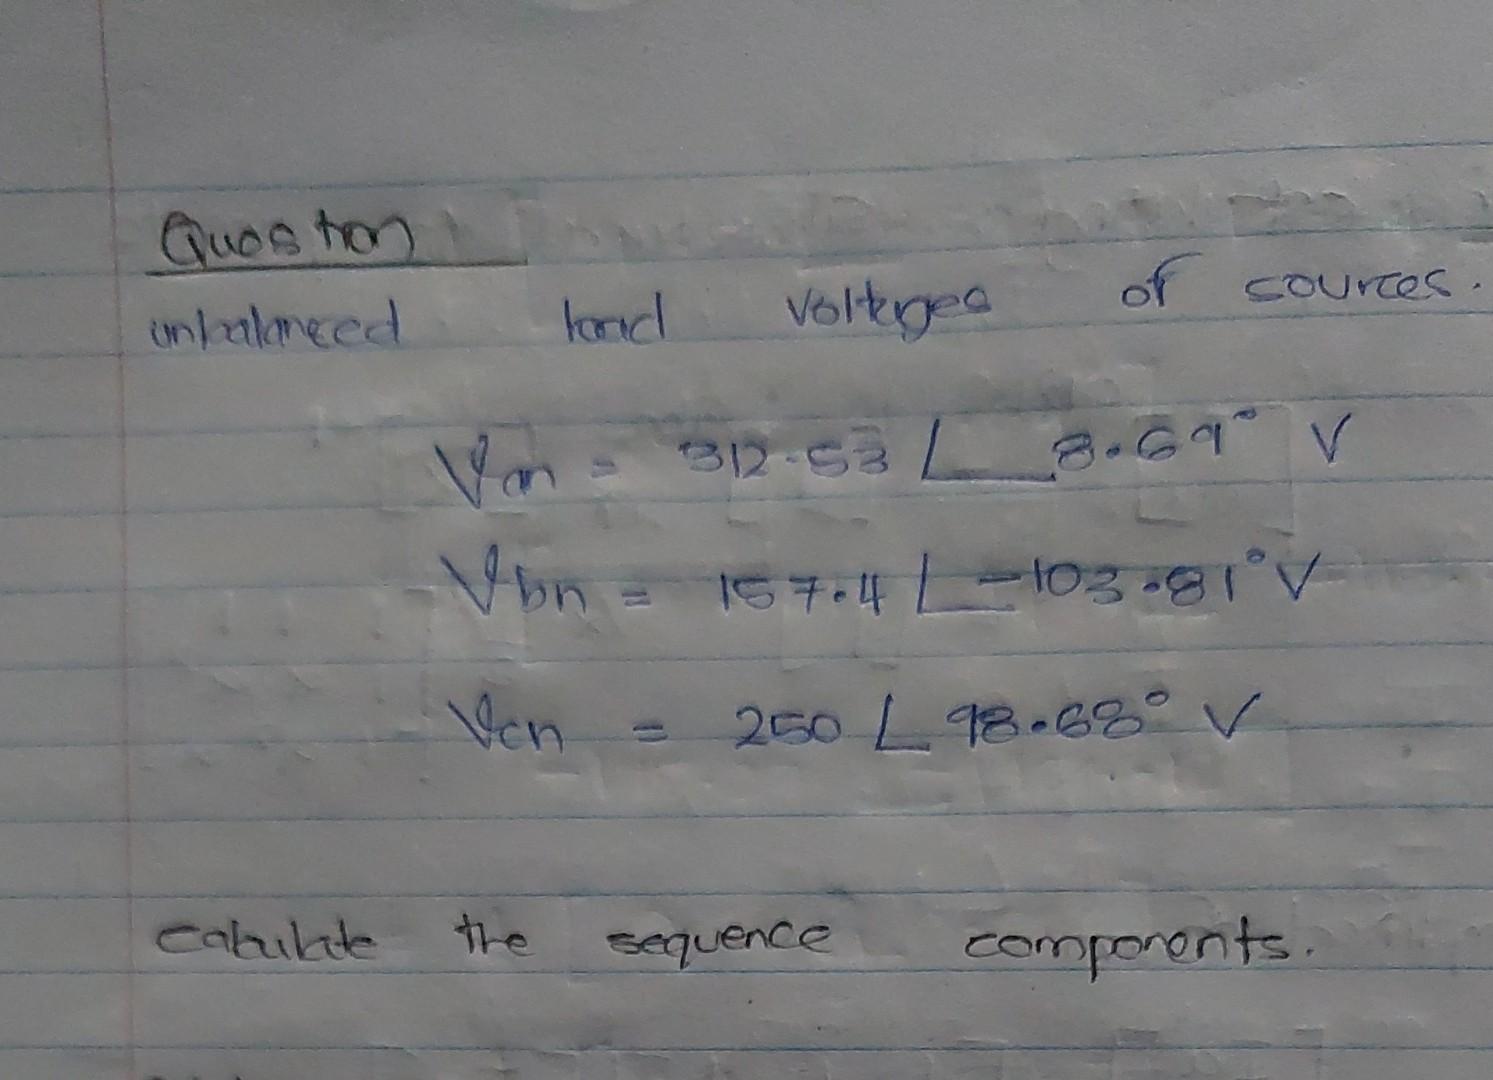 Question
unbalanced load voltages of sources.
Van = 312.53 ∠ 8.69° V
Vbn = 157.4 ∠ -103.81° V
Vcn = 250 ∠ 98.68° V
calculate the sequence components.